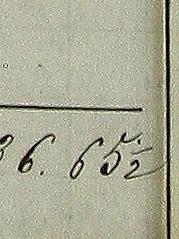 36. 65½